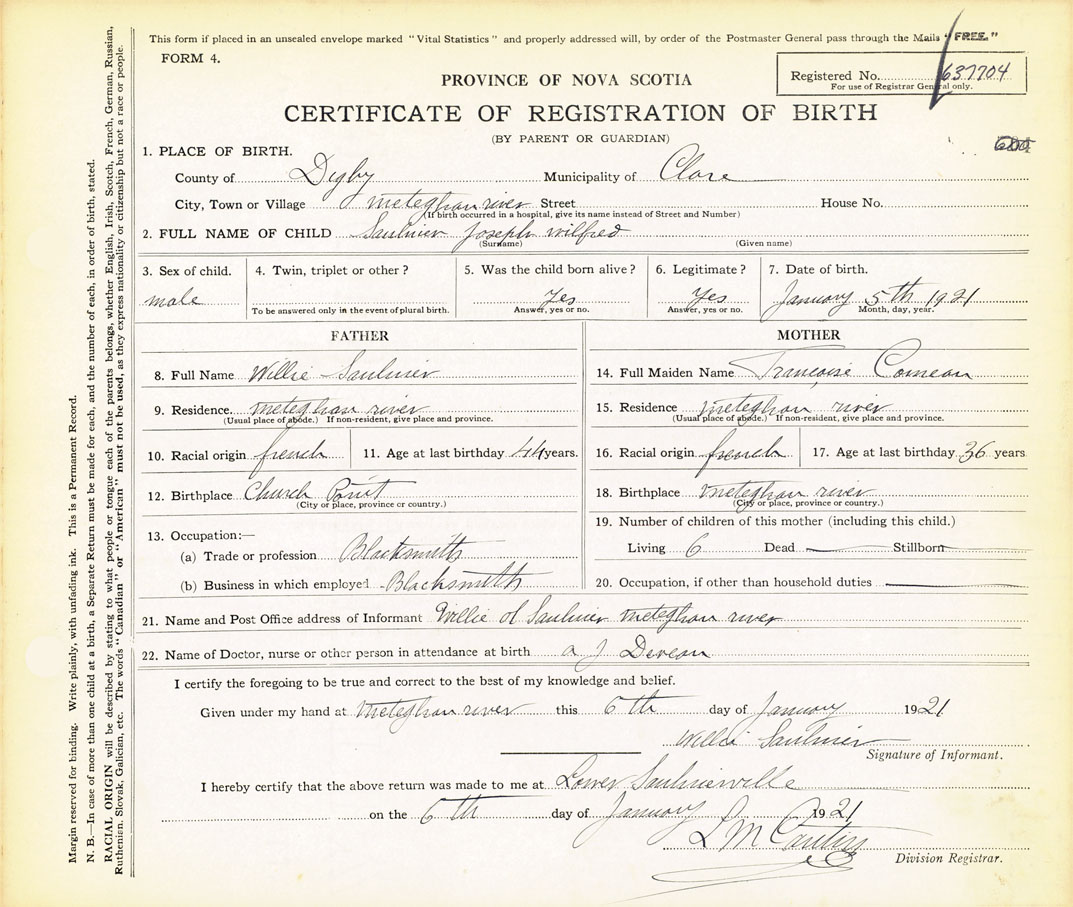 This form if placed in an unsealed envelope marked "Vital Statistics" and properly addressed will, by order of the Postmaster General pass through the Mails "FREE."
FORM 4.
PROVINCE OF NOVA SCOTIA
Registered No. 637704
For use of Registrar General only.
CERTIFICATE OF REGISTRATION OF BIRTH
(BY PARENT OR GUARDIAN)
1. PLACE OF BIRTH.
County of Digby Municipality of Clare
City, Town or Village meteghan river Street House No.
(If birth occurred in a hospital, give its name instead of Street and Number)
2. FULL NAME OF CHILD Saulnier Joseph wilfred
(Surname) (Given name)
3. Sex of child. 4. Twin, triplet or other? 5. Was the child born alive? 6. Legitimate? 7. Date of birth.
male Yes Yes January 5th 1921
To be answered only in the event of plural birth. Answer, yes or no. Answer, yes or no. Month, day, year.
FATHER
8. Full Name Willie Saulnier
9. Residence. meteghan river
(Usual place of abode.) If non-resident, give place and province.
10. Racial origin french 11. Age at last birthday 44 years.
12. Birthplace Church Point
(City or place, province or country.)
13. Occupation:—
(a) Trade or profession Blacksmith
(b) Business in which employed Blacksmith
MOTHER
14. Full Maiden Name Francoise Comeau
15. Residence meteghan river
(Usual place of abode.) If non-resident, give place and province.
16. Racial origin french 17. Age at last birthday 36 years
18. Birthplace meteghan river
(City or place, province or country.)
19. Number of children of this mother (including this child.)
Living 6 Dead Stillborn
20. Occupation, if other than household duties
21. Name and Post Office address of Informant Willie Saulnier meteghan river
22. Name of Doctor, nurse or other person in attendance at birth a J Deveau
I certify the foregoing to be true and correct to the best of my knowledge and belief.
Given under my hand at meteghan river this 6th day of January 1921
Willie Saulnier
Signature of Informant.
I hereby certify that the above return was made to me at Lower Saulnierville
on the 6th day of January 1921
L M
Division Registrar.
Margin reserved for binding. Write plainly, with unfading ink. This is a Permanent Record.
N. B.—In case of more than one child at a birth, a Separate Return must be made for each, and the number of each, in order of birth, stated.
RACIAL ORIGIN will be described by stating to what people or tongue each of the parents belongs, whether English, Irish, Scotch, French, German, Russian,
Ruthenian, Slovak, Galician, etc. The words "Canadian" or "American" must not be used, as they express nationality or citizenship but not a race or people.